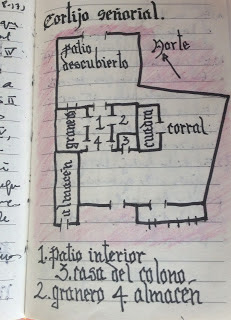 Cortijo señorial.
patio
descubierto
Norte
granero
1
2
4
3
cuadra
corral
almacén
1. patio interior
3. casa del colono
2. granero 4 almacén